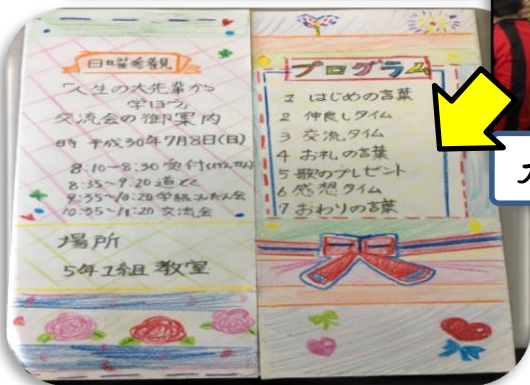 日曜参観
「人生の大先輩から
学ぼう」
交流会の御案内
時 平成30年7月8日(日)
8:10~8:30 受付(けんかん)
8:35~9:20 道とく
9:35~10:20 学級こんだん会
10:35~11:20 交流会
場所
5年1組 教室
プログラム
1 はじめの言葉
2 仲良しタイム
3 交流タイム
4 お礼の言葉
5 歌のプレゼント
6 感想タイム
7 おわりの言葉